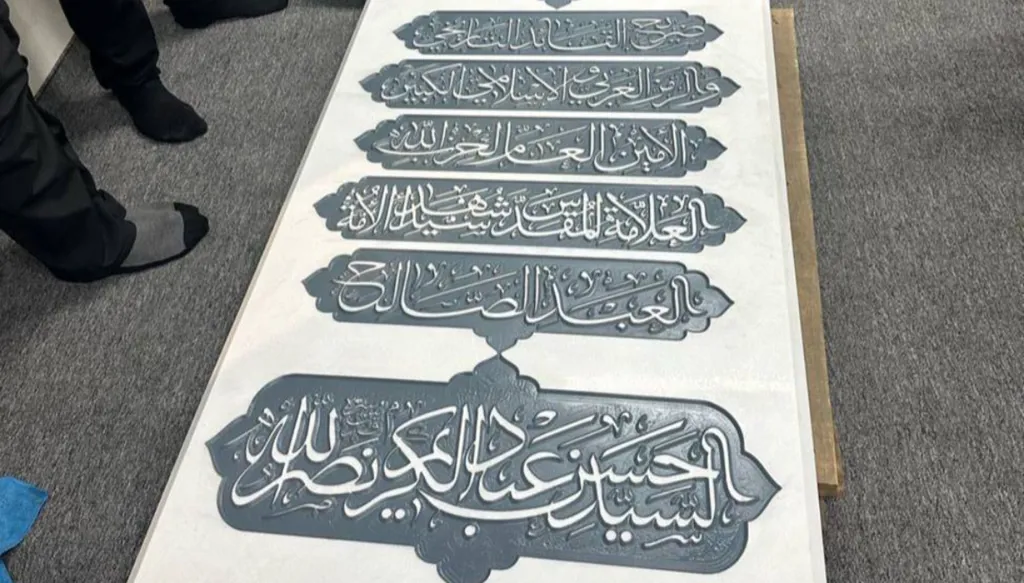 ضريح القائد التاريخي
والرمز العربي والإسلامي الكبير
الأمين العام لحزب الله
العلامة المقدس سيد شهداء الأمة
العبد الصالح
السيد حسن عبد الكريم نصر الله